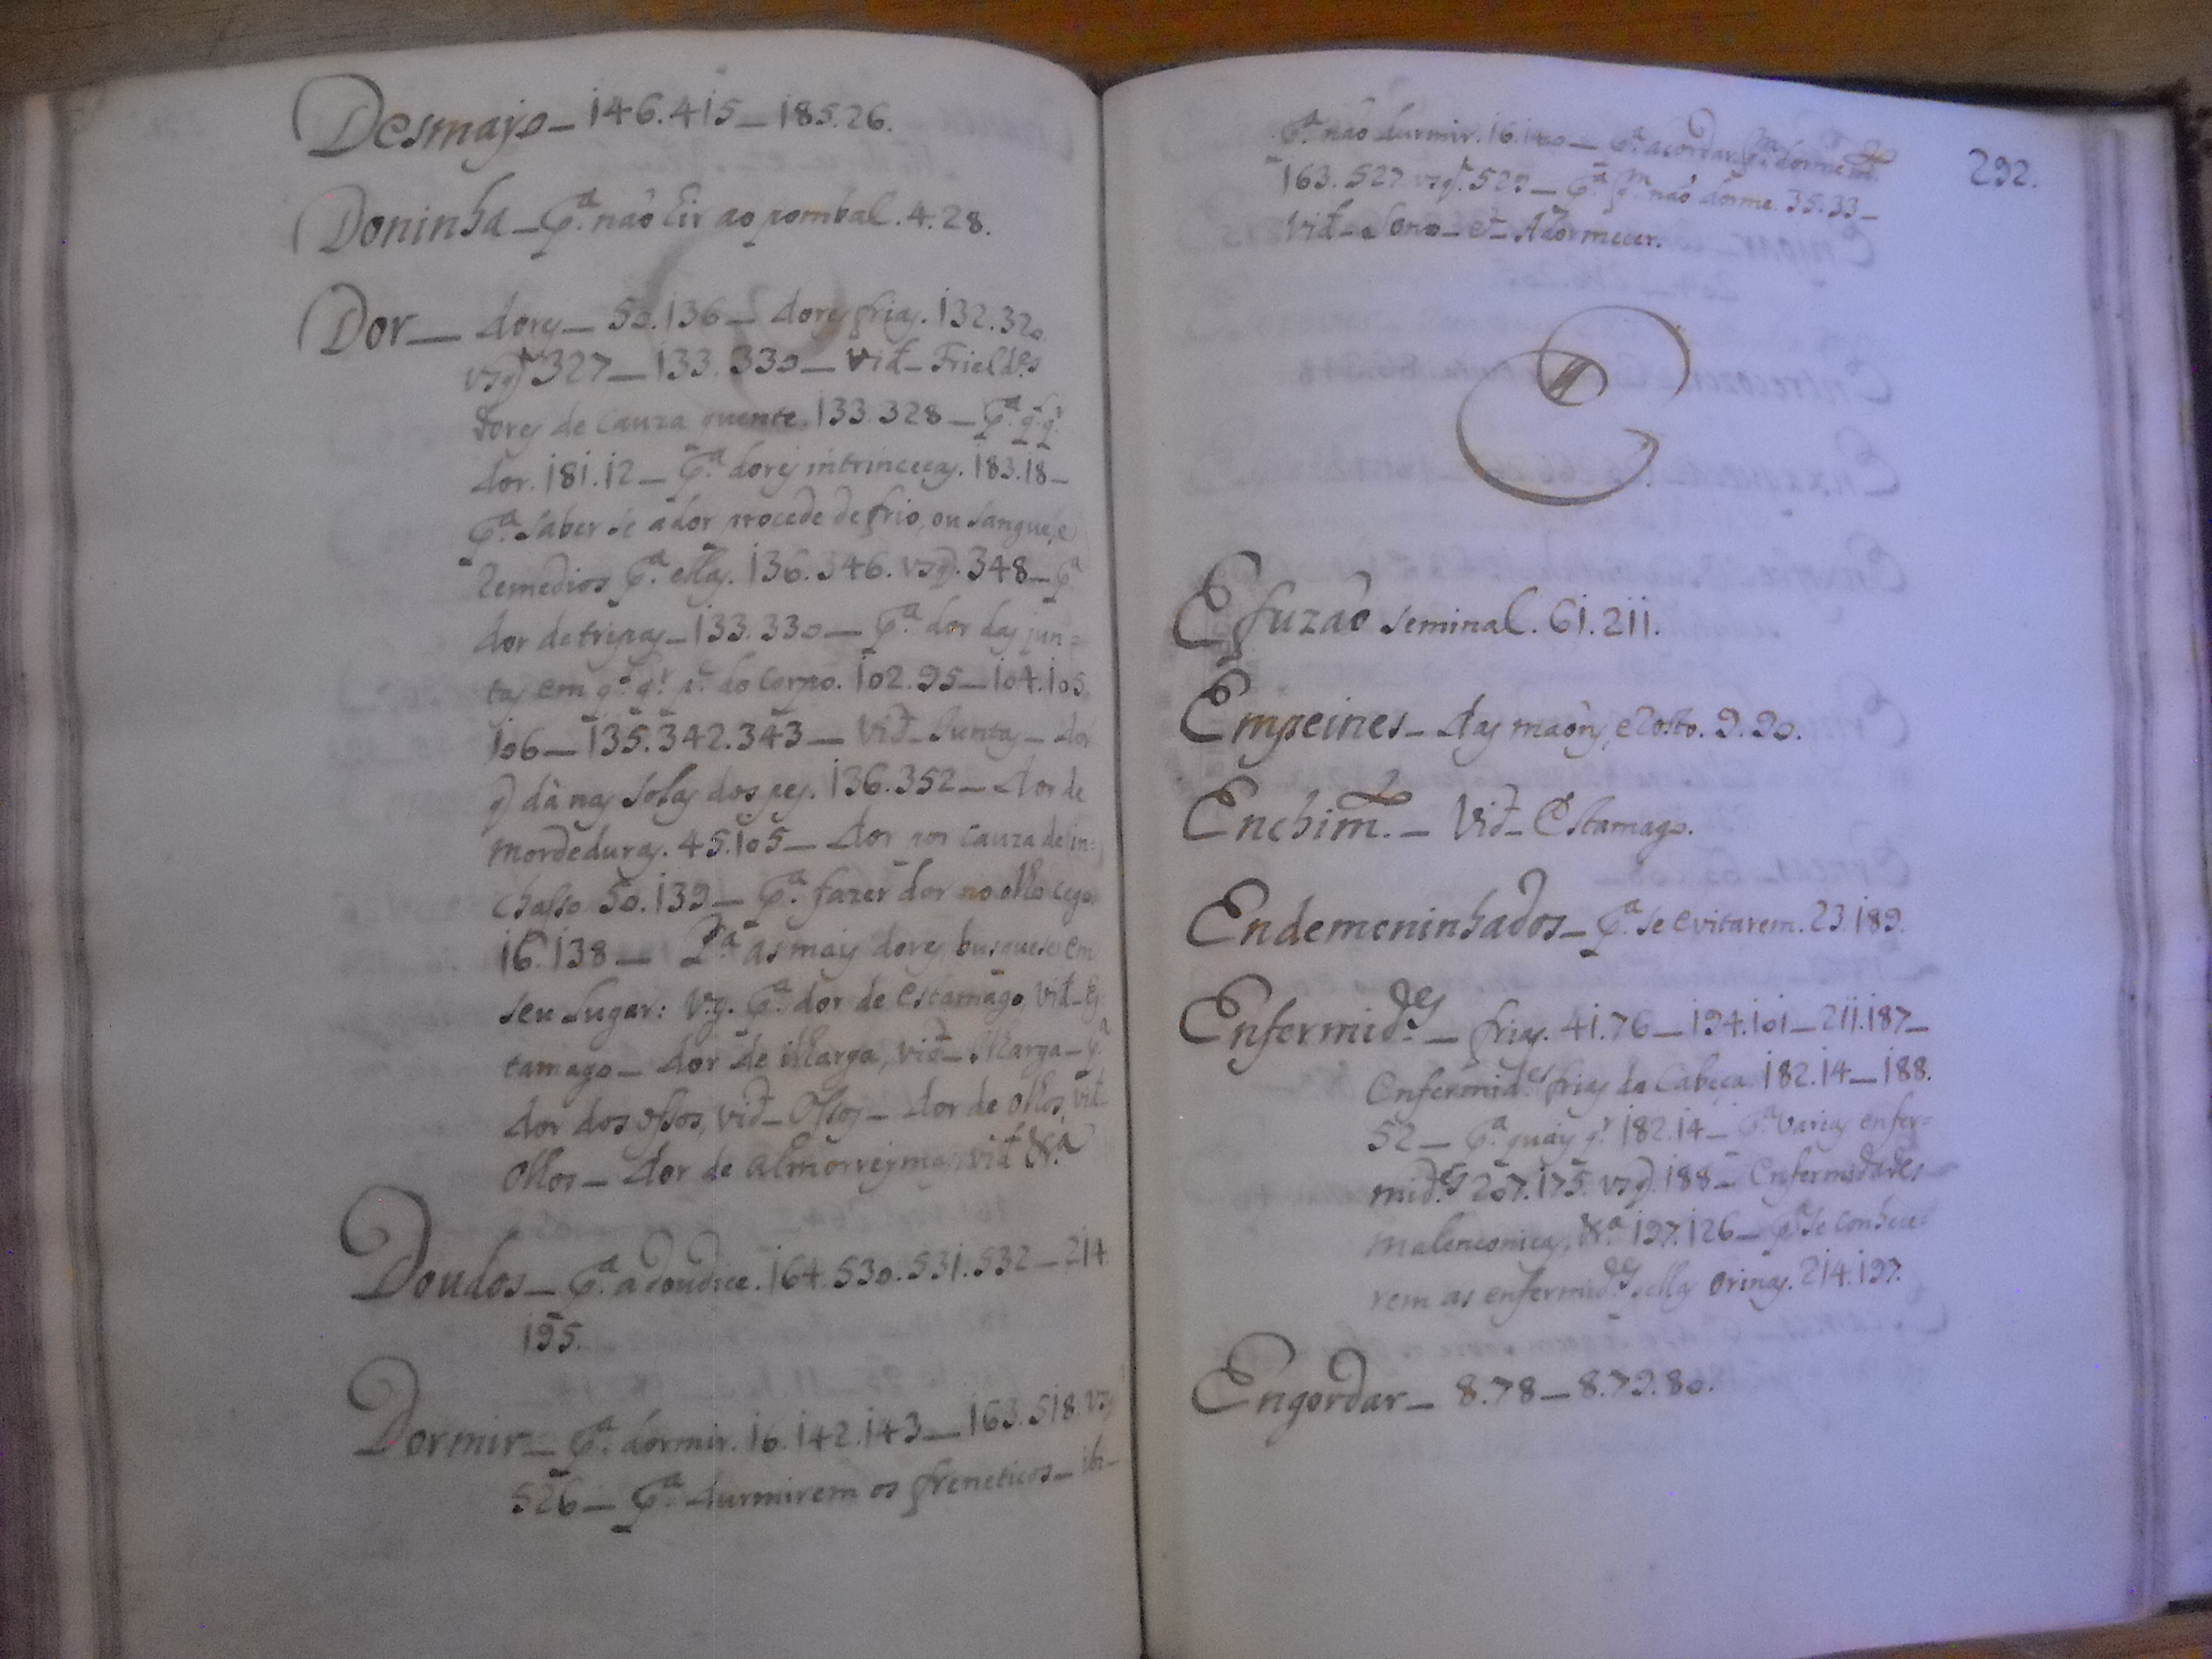 Desmayo_146.415_185.26.
Doninha_P.ª não hir ao pombal.4.28.
Dor_ dores_50.136_dores frias.132.320
vsq͂ 327_133.330_vid_Frield.es
dores de cauza quente.133.328_P.ª q.q.r
dor.181.12_P.ª dores intrincecas.183.18_
P.ª saber se a dor procede de frio, ou sangue, e
remedios p.ª ellas.136.346.vsq͂.348_P.ª
dor de tripas_133.330_P.ª dor das jun=
tas em q.q.r p.e do corpo.102.95_104.105
106_135.342.343_Vid_Juntas_dor
q͂ dà nas solas dos pes.136.352_dor de
mordeduras.45.105_dor por cauza de in=
chasso 50.139_P.ª fazer dor no olho cego
16.138_P.ª as mais dores, busquese em
seu lugar: v.g. P.ª dor de estamago, vid_Es
tamago_dor de ilharga, vid_Ilharga_P.ª
dor dos ossos, vid_Ossos_dor de olhos, vid
Olhos_dor de almorreymas, vid &.ª
Doudos_P.ª a doudice.164.530.531.532_214
195.
Dormir_P.ª dormir.16.142.143_163.518.vsq͂
526_P.ª durmirem os freneticos_ib_
292.
P.ª não durmir.16.140_P.ª acordar q.m dorme m.to
163.527 vsq͂.529_P.ª q.m não dorme.35.33_
Vid_Sono_et_Adormecer.
E
Efuzão seminal.61.211.
Empeines_das maõs, e rosto.9.90.
Enchim.to_Vid_Estamago.
Endemoninhados_P.ª se evitarem.23.189.
Enfermid.es_frias.41.76_194.101_211.187_
Enfermid.es frias da Cabeça.182.14_188.
52_P.ª quais q.r 182.14_P.ª varias enfer=
mid.es 207.175.vsq͂.188_Enfermidades
malenconicas, &.ª 197.126_P.ª se conhece=
rem as enfermid.es pellas orinas.214.197.
Engordar_8.78_8.79.80.